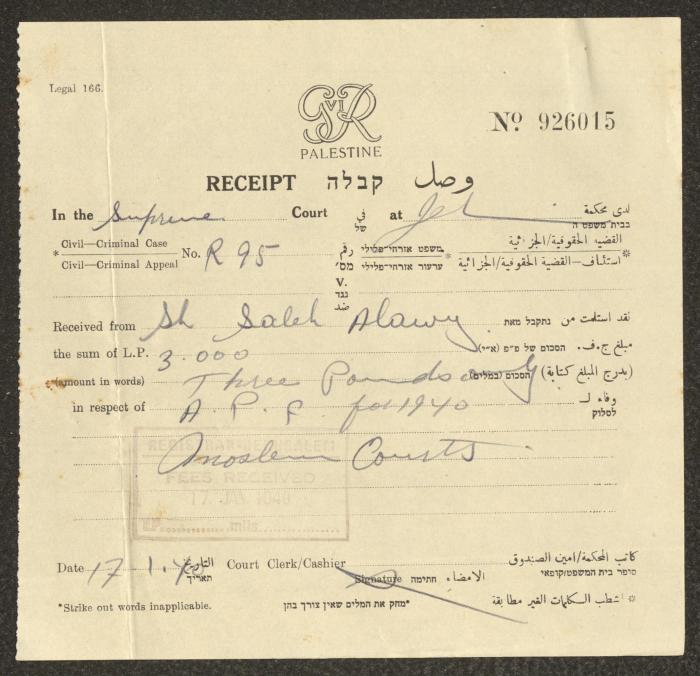 Legal 166.
G VI R
PALESTINE
Nº 926015
RECEIPT קבלה وصل
In the Supreme Court في של at لدى محكمة בבית משפט ה
Civil—Criminal Case משפט אזרחי-פלילי القضية الحقوقية/الجزائية
* No. R 95 رقم מס'
Civil—Criminal Appeal ערעור אזרחי-פלילי * استئناف-القضية الحقوقية/الجزائية *
V.
נגד
ضد
Received from Sh Saleh Alawy נתקבל מאת نقد استلمت من
the sum of L.P. 3.000 הסכום של פ"פ (א"י) مبلغ ج.ف.
(amount in words) Three Pounds only הסכום (במלים) (بدرج المبلغ كتابة)
in respect of A. P. F. for 1940 وفاء لـ לסלוק
Moslem Courts
REGISTRAR JERUSALEM
FEES RECEIVED
17 JAN 1940
£P. mils
Date 17.1.40 التاريخ תאריך Court Clerk/Cashier كاتب المحكمة/امين الصندوق סופר בית המשפט/קופאי
Signature חתימה الامضاء
*Strike out words inapplicable. *מחק את המלים שאין צורך בהן * اشطب الكلمات الغير مطابقة